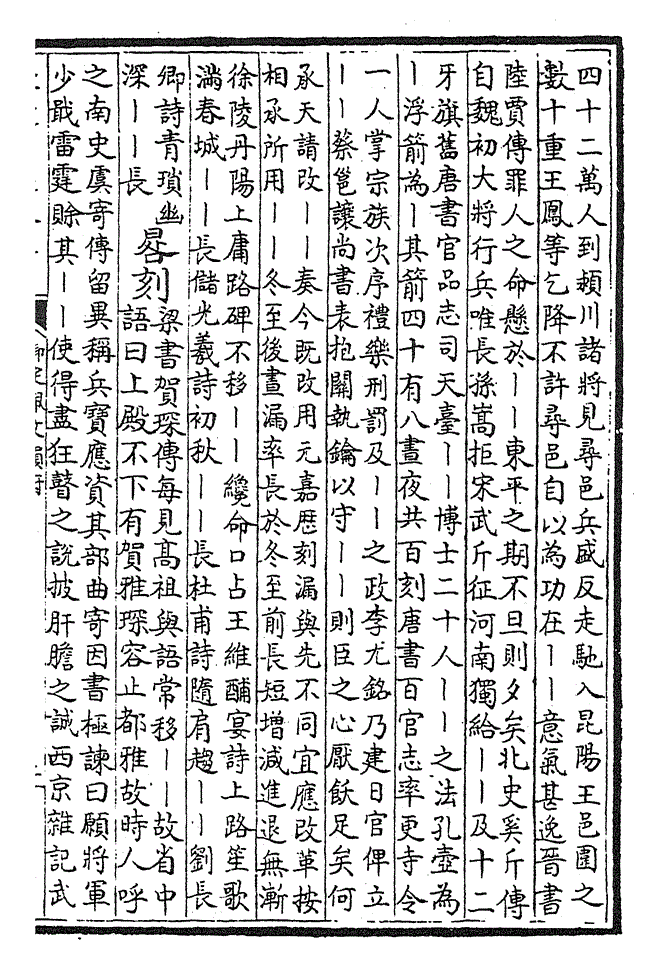 四十二萬人到潁川諸將見尋邑兵盛反走馳入昆陽王邑圍之
數十重王鳳等乞降不許尋邑自以為功在丨丨意氣甚逸晉書
陸賈傳罪人之命懸於丨丨東平之期不旦則夕矣北史奚斤傳
自魏初大將行兵唯長孫嵩拒宋武斤征河南獨給丨丨及十二
牙旗舊唐書官品志司天臺丨丨博士二十人丨丨之法孔壺為
丨浮箭為丨其箭四十有八晝夜共百刻唐書百官志率更寺令
一人掌宗族次序禮樂刑罰及丨丨之政李尤銘乃建日官俾立
丨丨蔡邕讓尚書表抱關執鑰以守丨丨則臣之心厭飫足矣何
承天請改丨丨奏今既改用元嘉歴刻漏與先不同宜應改革按
相承所用丨丨冬至後晝漏率長於冬至前長短增減進退無漸
徐陵丹陽上庸路碑不移丨丨纔命口占王維酺宴詩上路笙歌
滿春城丨丨長儲光羲詩初秋丨丨長杜甫詩隨肩趨丨丨劉長
卿詩青瑣幽
深丨丨長
晷刻
梁書賀琛傳每見高祖與語常移丨丨故省中
語曰上殿不下有賀雅琛容止都雅故時人呼
之南史虞寄傳留異稱兵寶應資其部曲寄因書極諫曰願將軍
少戢雷霆賒其丨丨使得盡狂瞽之說披肝膽之誠西京雜記武